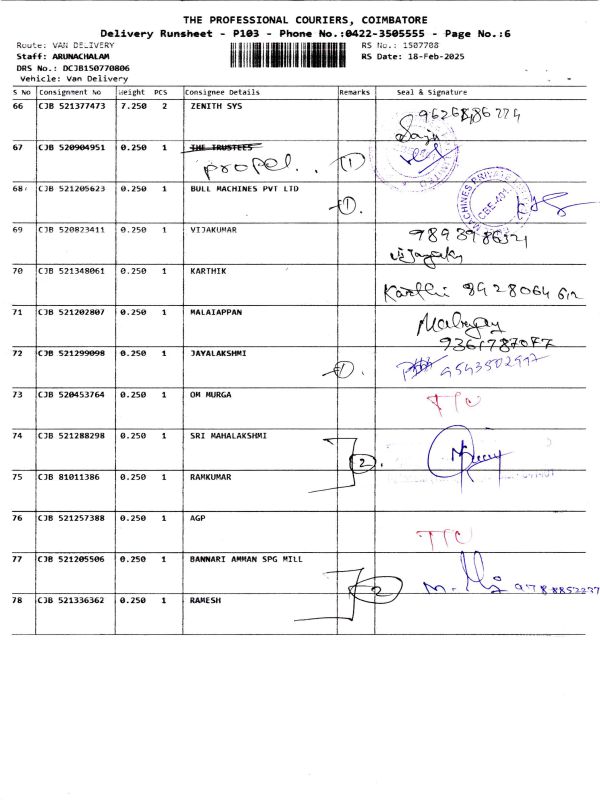 THE PROFESSIONAL COURIERS, COIMBATORE
Delivery Runsheet - P103 - Phone No.:0422-3505555 - Page No.:6
Route: VAN DELIVERY RS No.: 1507708
Staff: ARUNACHALAM RS Date: 18-Feb-2025
DRS No.: DCJB150770806
Vehicle: Van Delivery
S No Consignment No Weight PCS Consignee Details Remarks Seal & Signature
66 CJB 521377473 7.250 2 ZENITH SYS
67 CJB 520904951 0.250 1 THE TRUSTEES
propel.. (1)
68 CJB 521205623 0.250 1 BULL MACHINES PVT LTD
(1).
MACHINES PRIVATE
CBE-401
69 CJB 520823411 0.250 1 VIJAKUMAR
70 CJB 521348061 0.250 1 KARTHIK
71 CJB 521202807 0.250 1 MALAIAPPAN
9361787077
72 CJB 521299098 0.250 1 JAYALAKSHMI (1).
73 CJB 520453764 0.250 1 OM MURGA
74 CJB 521288298 0.250 1 SRI MAHALAKSHMI
2.
75 CJB 81011386 0.250 1 RAMKUMAR
76 CJB 521257388 0.250 1 AGP
77 CJB 521205506 0.250 1 BANNARI AMMAN SPG MILL
2
78 CJB 521336362 0.250 1 RAMESH